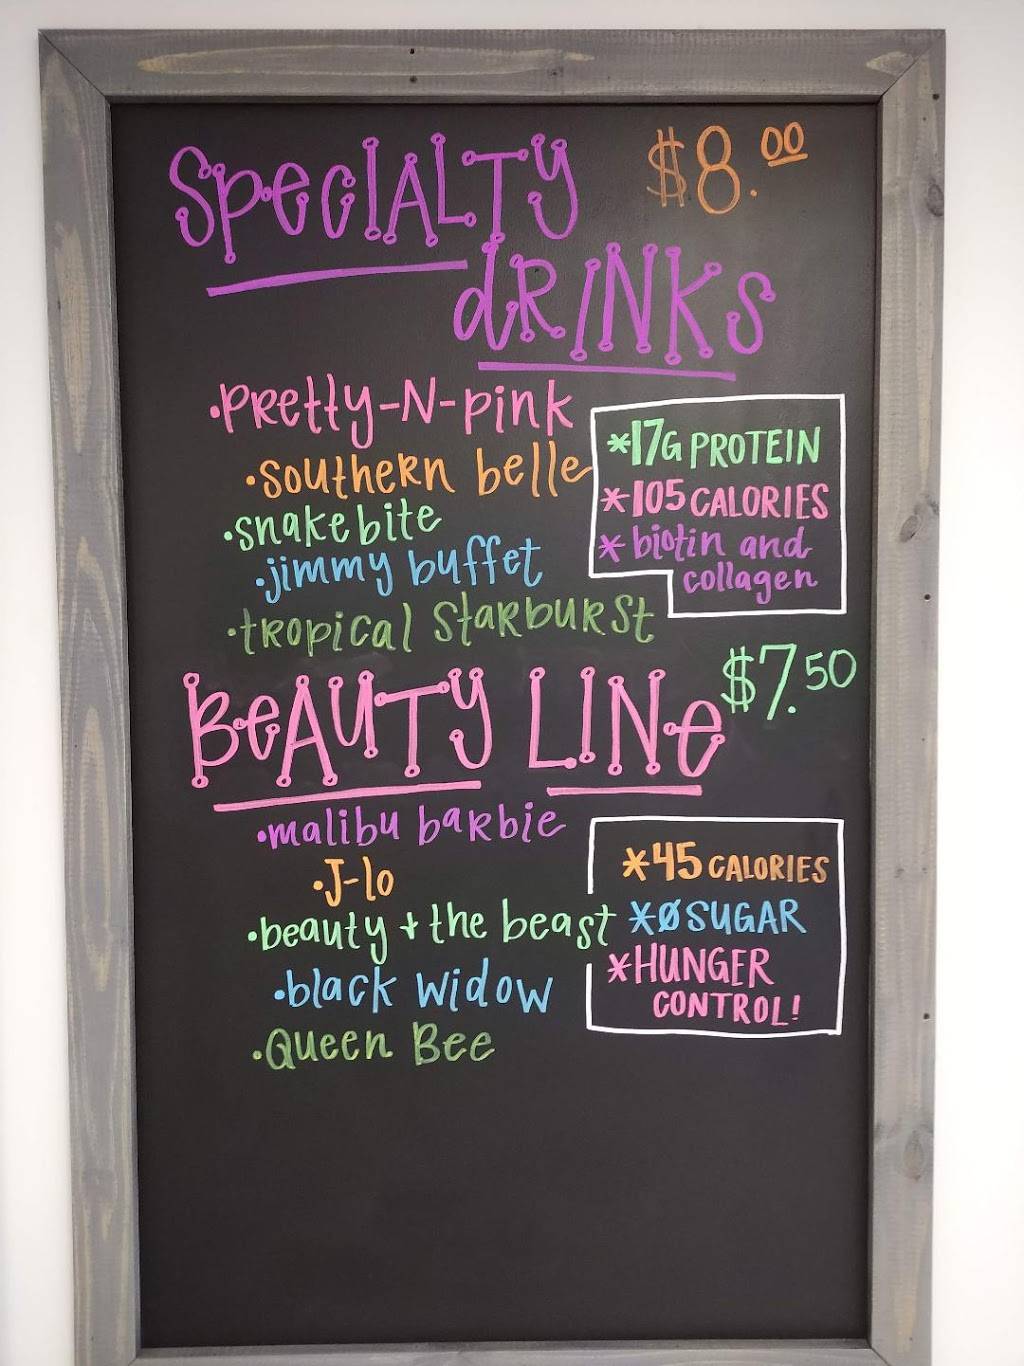 SpecIALTy $8.00
dRINKs
•PRetty-N-pink
•southern belle
•snakebite
•jimmy buffet
•tropical StaRbuRSt
*17G PROTEIN
*105 CALORIES
*biotin and
collagen
BeAUTy LINe $7.50
•malibu baRbie
•J-lo
•beauty + the beast
•black widow
•Queen Bee
*45 CALORIES
*Ø SUGAR
*HUNGER
CONTROL!